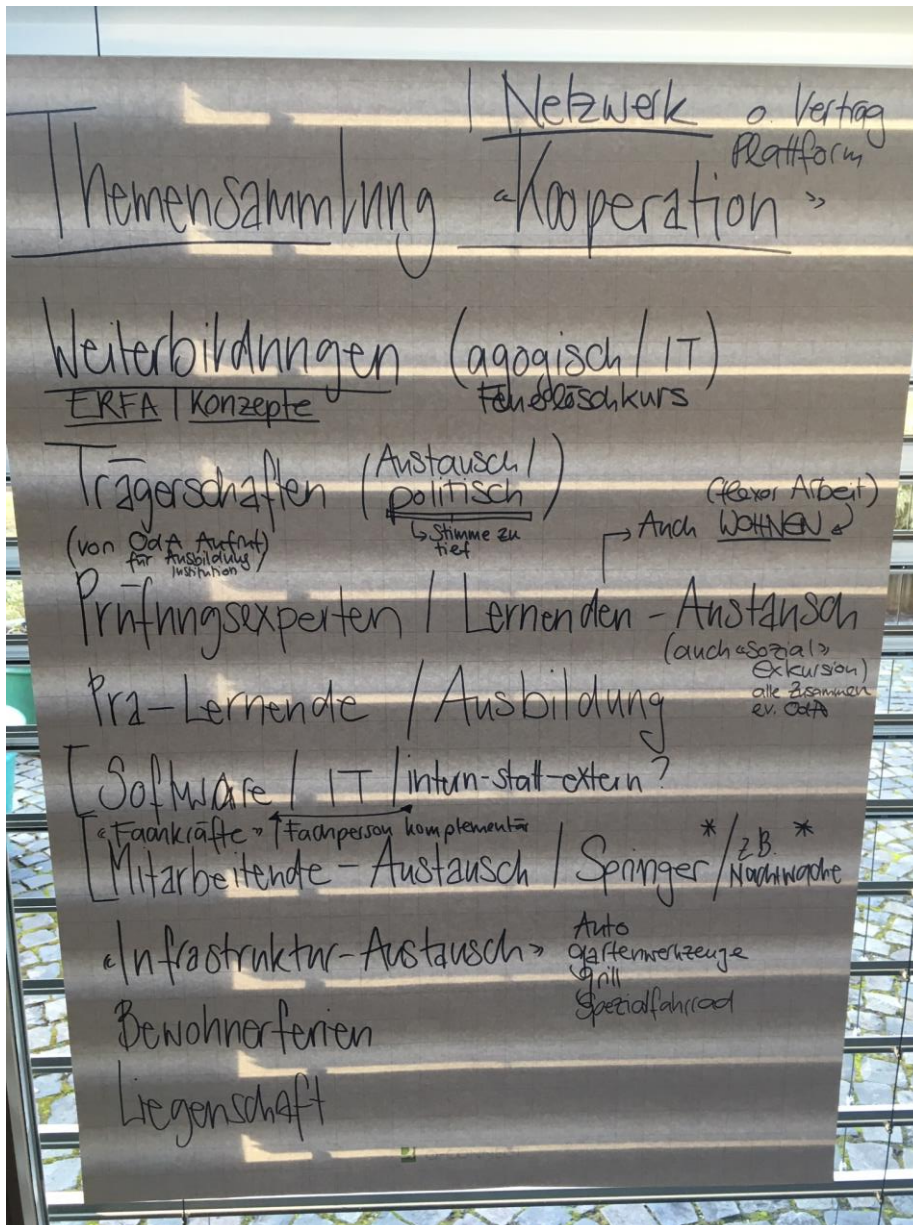 | Netzwerk o. Vertrag
Plattform
Themensammlung «Kooperation»
Weiterbildungen (agogisch / IT)
ERFA | Konzepte Feuerlöschkurs
Trägerschaften (Austausch / politisch)
(von OdA Aufruf für Ausbildung Institution)
↳ Stimme zu tief
→ Auch WOHNEN
(flexor Arbeit)
Prüfungsexperten / Lernenden - Austausch
(auch «Sozial» Exkursion)
alle zusammen
ev. OdA
Pra-Lernende / Ausbildung
[Software / IT / intern-statt-extern?
«Fachkräfte» / Fachperson komplementär
[Mitarbeitende - Austausch / Springer* / z.B.* Nachtwache
«Infrastruktur-Austausch»
Auto
Gartenwerkzeuge
Grill
Spezialfahrrad
Bewohnerferien
Liegenschaft